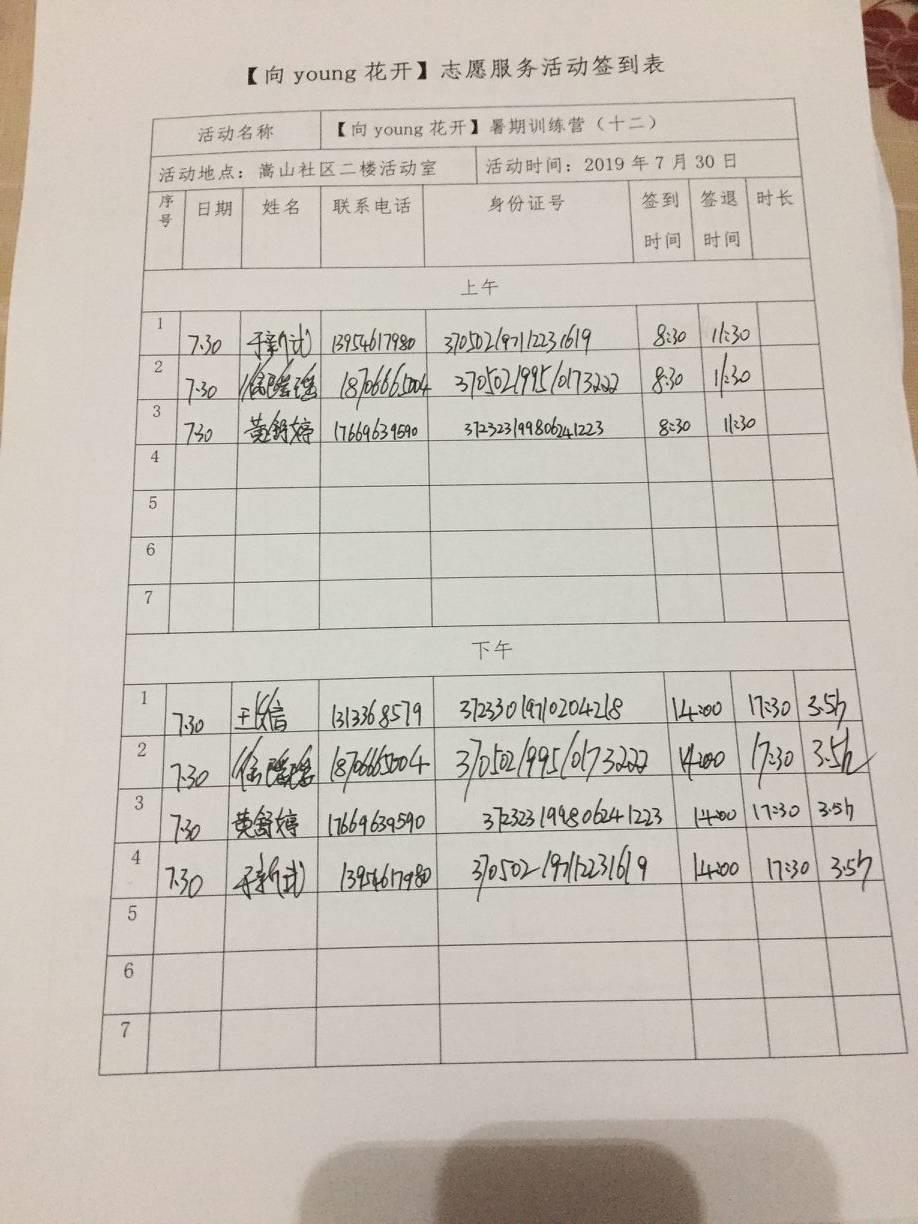 【向 young 花开】志愿服务活动签到表
活动名称 【向 young 花开】暑期训练营（十二）
活动地点：嵩山社区二楼活动室 活动时间：2019 年 7 月 30 日
序号 日期 姓名 联系电话 身份证号 签到时间 签退时间 时长
上午
1 7.30 13954617980 370502197112231619 8:30 11:30
2 7.30 18706665004 370502199510173222 8:30 11:30
3 7.30 黄舒婷 17669639590 372323199806241223 8:30 11:30
4
5
6
7
下午
1 7.30 1313368579 37233019710204218 14:00 17:30 3.5h
2 7.30 18706665004 370502199510173222 14:00 17:30 3.5h
3 7.30 黄舒婷 17669639590 372323199806241223 14:00 17:30 3.5h
4 7.30 13954617980 370502197112231619 14:00 17:30 3.5h
5
6
7